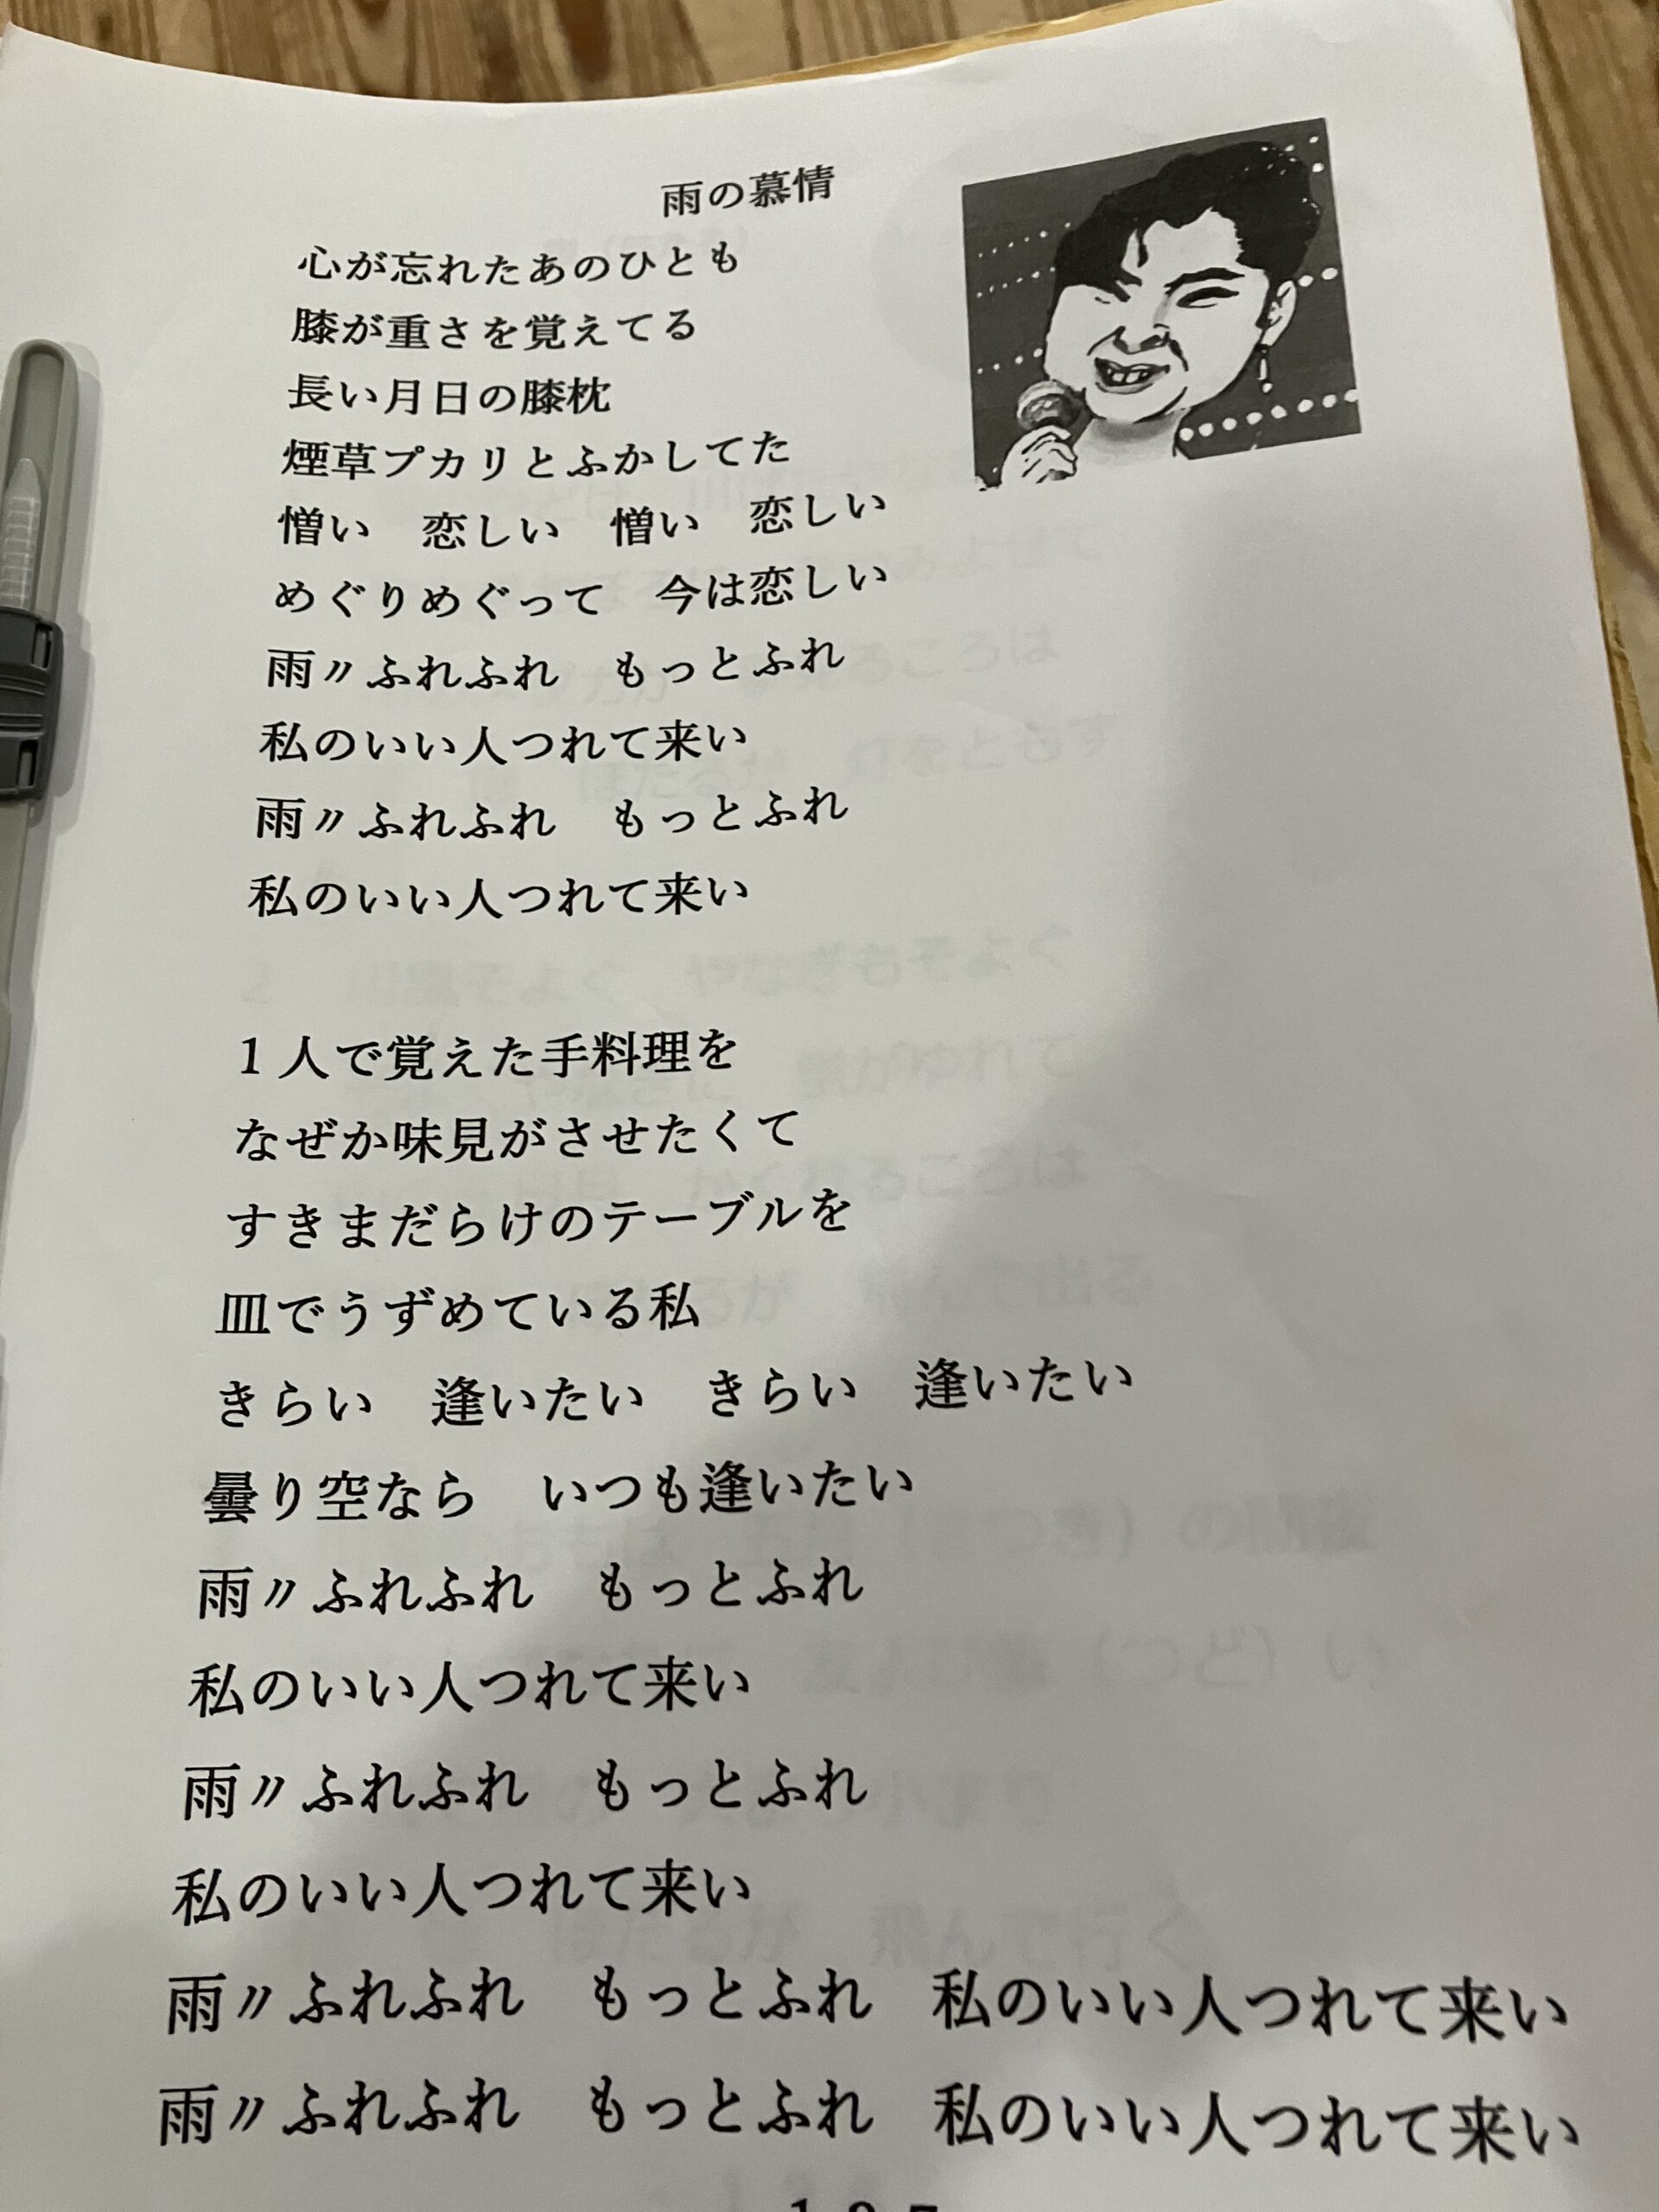 雨の慕情
心が忘れたあのひとも
膝が重さを覚えてる
長い月日の膝枕
煙草プカリとふかしてた
憎い　恋しい　憎い　恋しい
めぐりめぐって　今は恋しい
雨〃ふれふれ　もっとふれ
私のいい人つれて来い
雨〃ふれふれ　もっとふれ
私のいい人つれて来い
1人で覚えた手料理を
なぜか味見がさせたくて
すきまだらけのテーブルを
皿でうずめている私
きらい　逢いたい　きらい　逢いたい
曇り空なら　いつも逢いたい
雨〃ふれふれ　もっとふれ
私のいい人つれて来い
雨〃ふれふれ　もっとふれ
私のいい人つれて来い
雨〃ふれふれ　もっとふれ　私のいい人つれて来い
雨〃ふれふれ　もっとふれ　私のいい人つれて来い